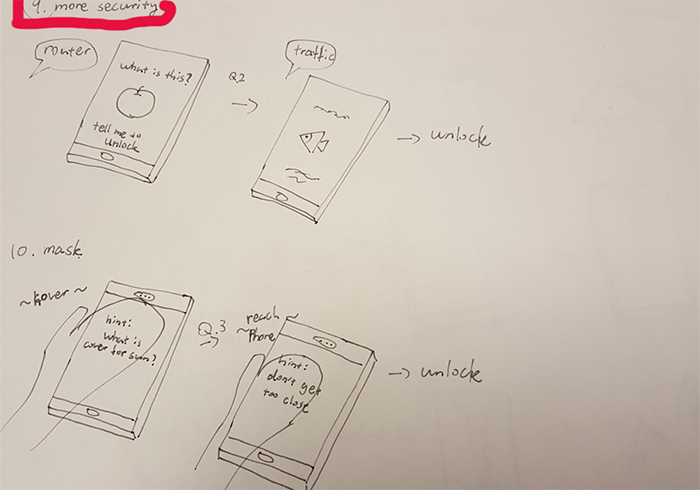 9. more security
router
what is this?
tell me to
unlock
Q.2
traffic
→ unlock
10. mask
hint:
what is
cover for sun?
Q.3
reach ~
~ Phone
hint:
don't get
too close
→ unlock